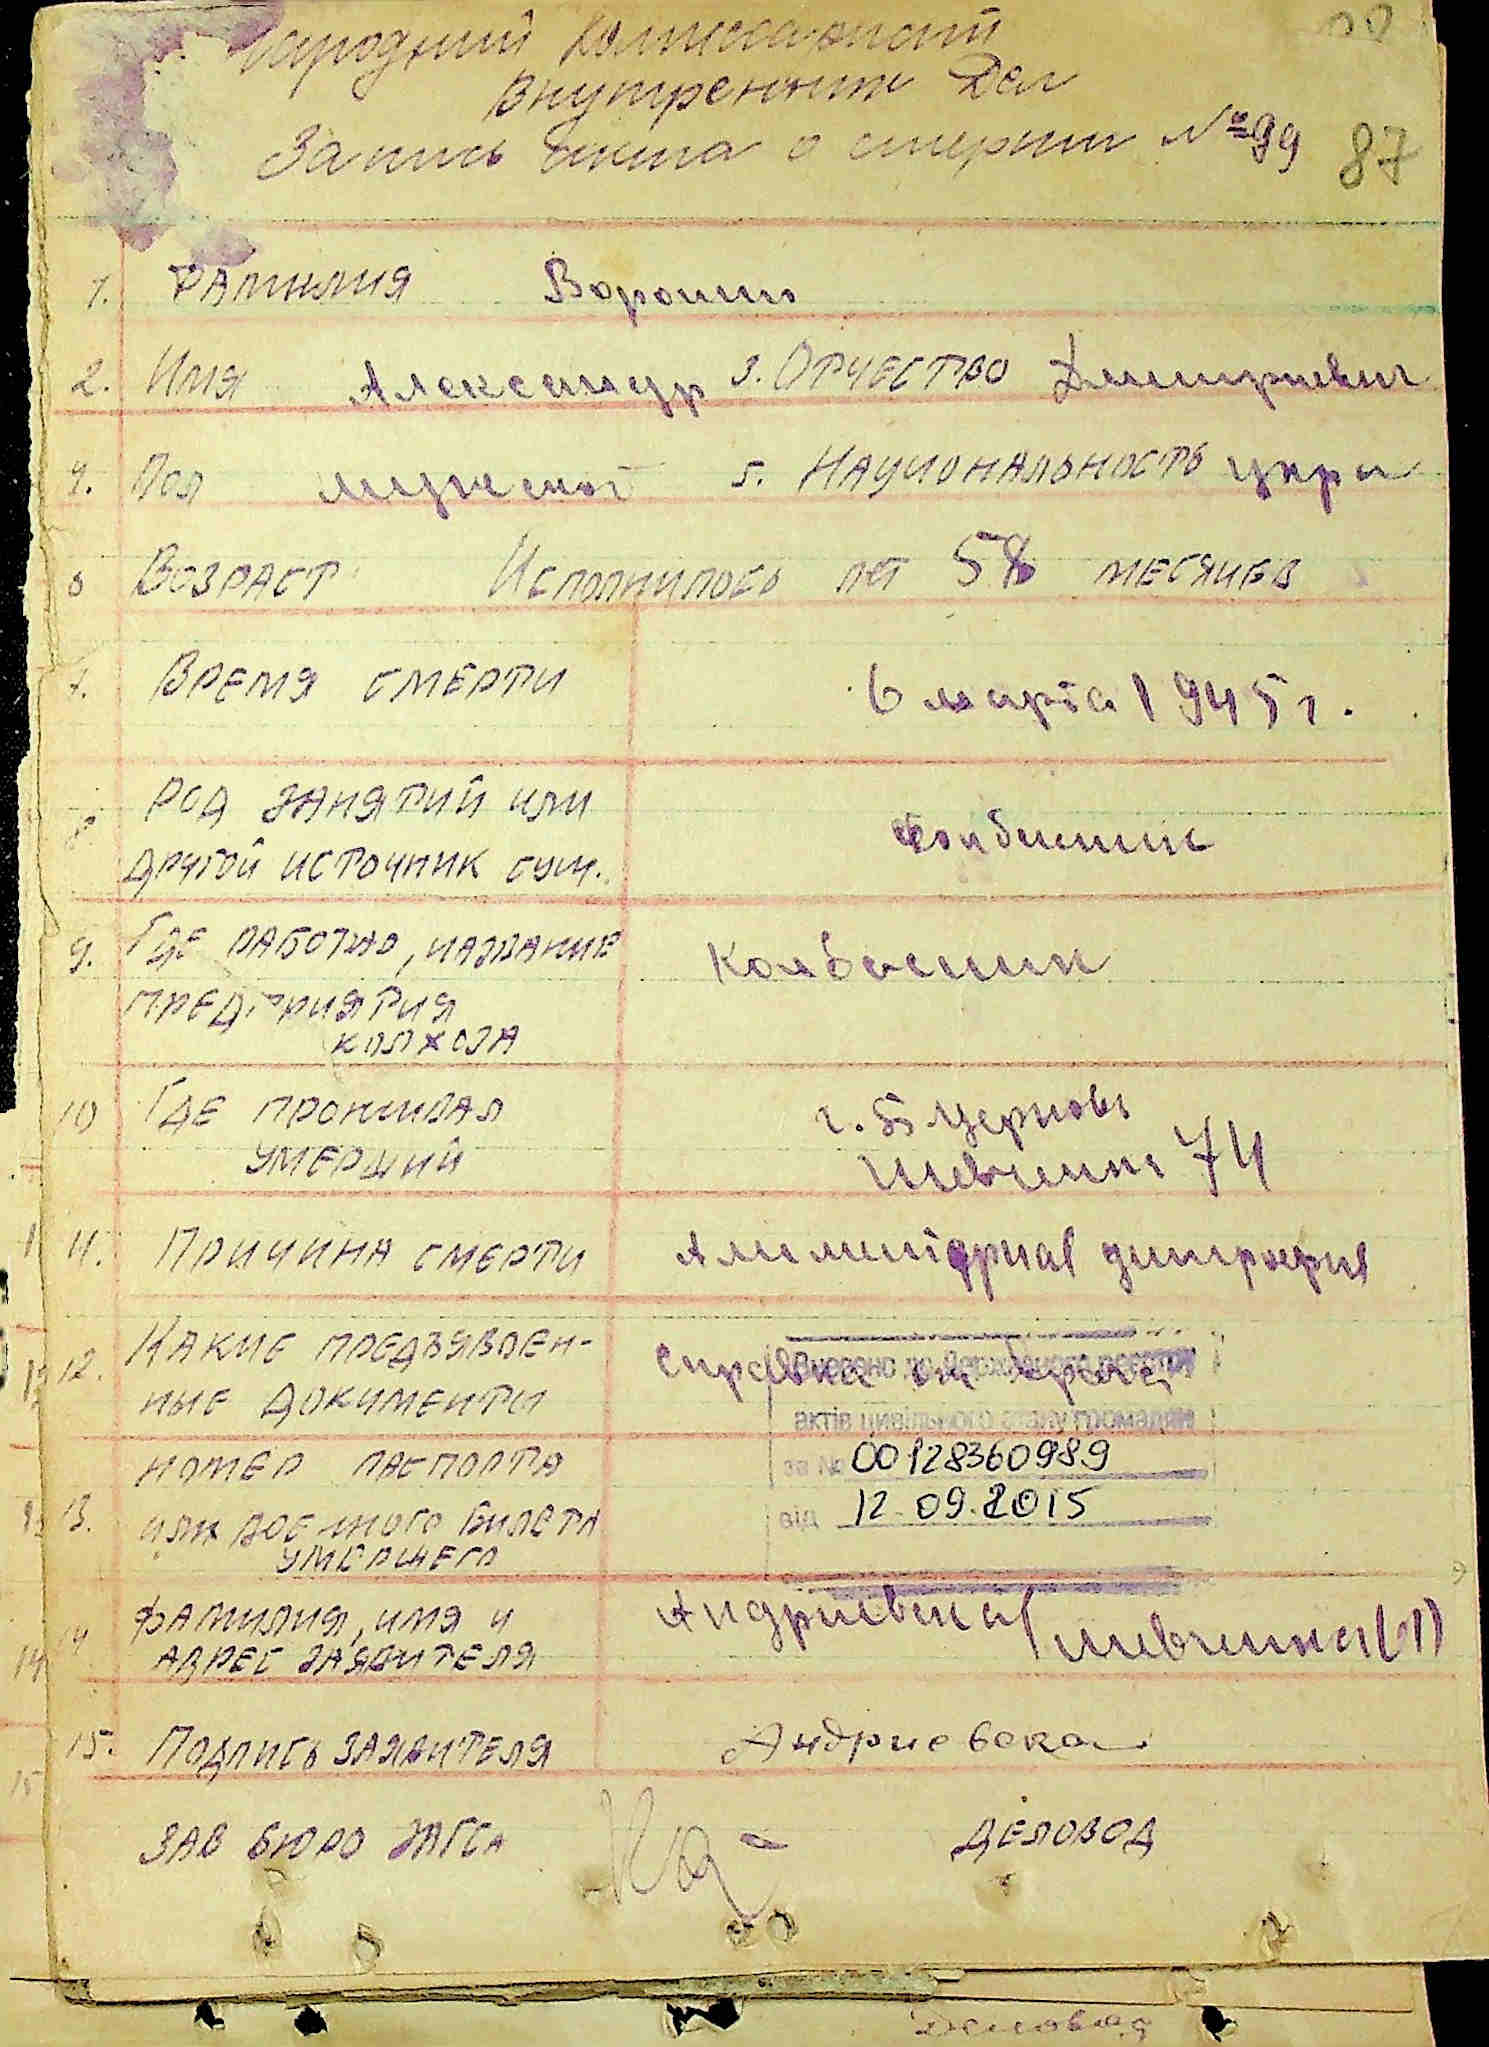 Народный Комиссариат
Внутренних Дел
Запись Акта о смерти №99 87
1. Фамилия
2. Имя Александр 3. Отчество Дмитриевич
4. Пол мужской 5. Национальность укра
6 Возраст Исполнилось лет 58 месяцев
7. Время смерти 6 марта 1945 г.
8 Род занятий или
другой источник сущ.
9. Где работал, название
предприятия
колхоза
Колбасник
10 Где проживал г. Б Церковь
умерший Шевченко 74
11. Причина смерти Алиментарная дитрофия
12. Какие предъявлен- Справка от врача
ные документы
Внесено до Державного реєстру
актів цивільного стану громадян
за № 00128360989
від 12.09.2015
номер паспорта
13. или военного билета
умершего
14 Фамилия, имя и Андриевская Шевченко
адрес заявителя
15. Подпись заявителя Андриевская
Зав бюро ЗАГСа Деловод
Деловод